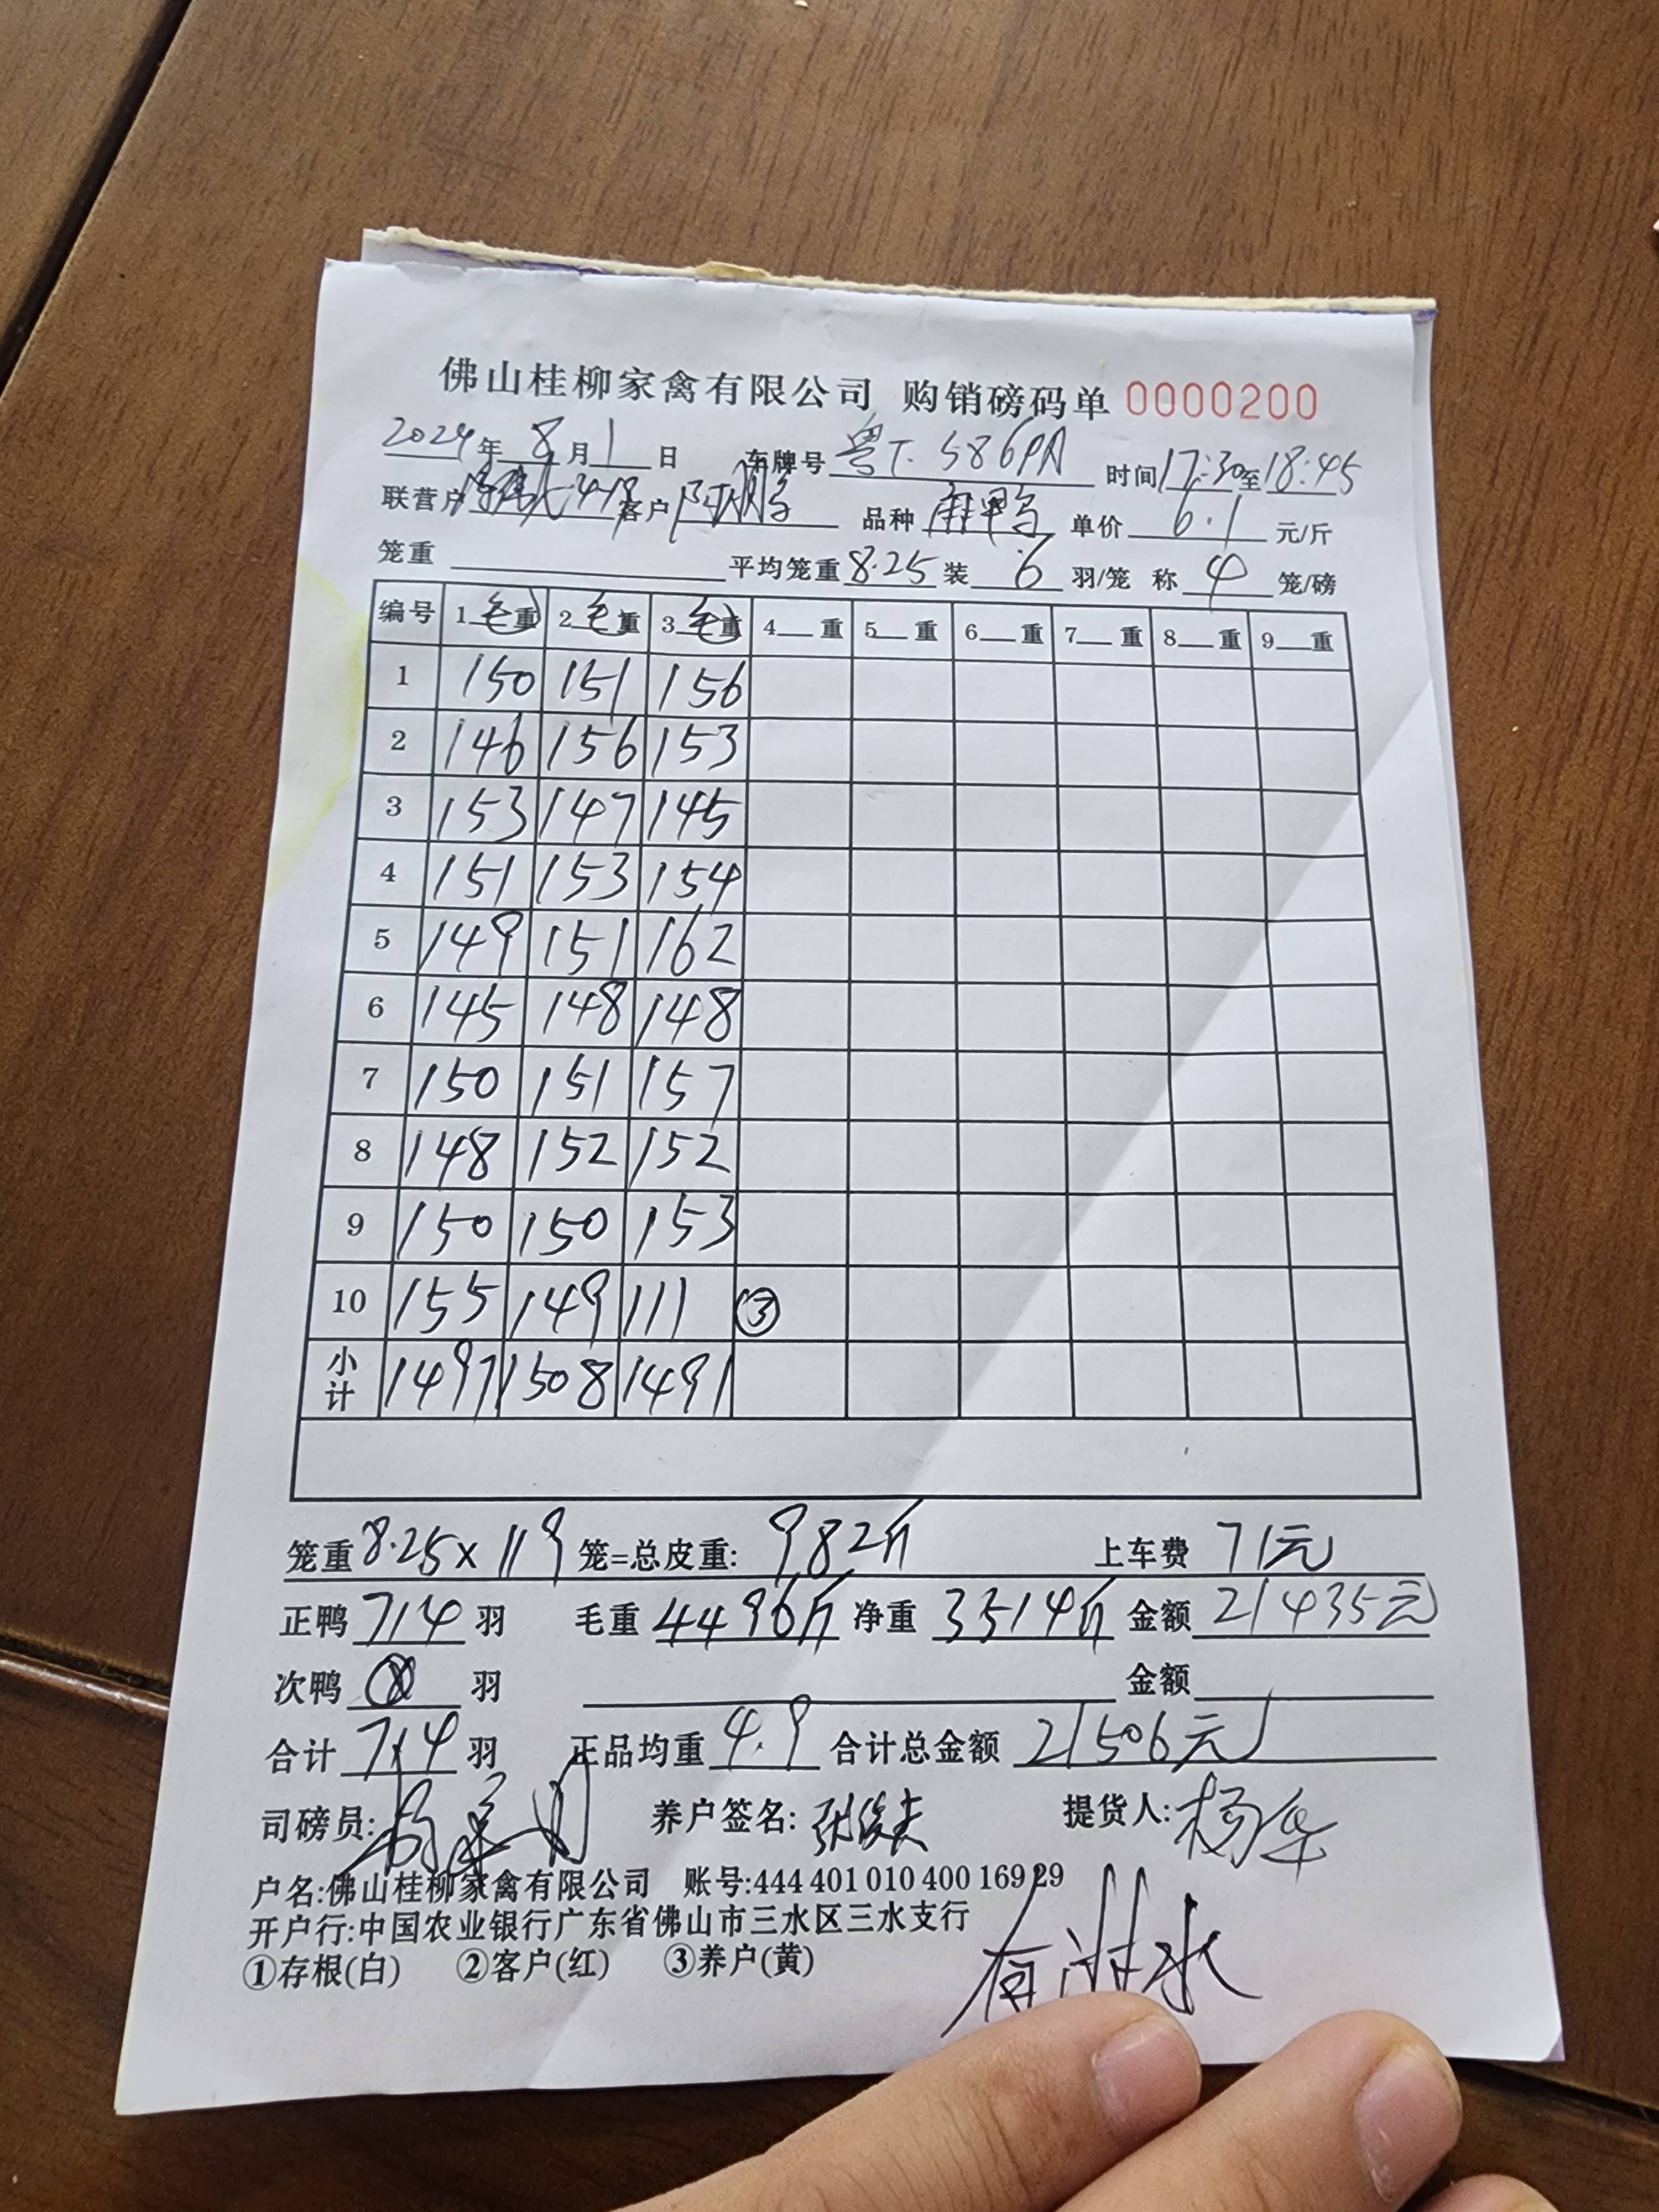 佛山桂柳家禽有限公司 购销磅码单 0000200
2024年 8月 1 日 车牌号 粤T·586PA 时间17:30至18:45
联营户 客户 陈鹏 品种 麻鸭 单价 6.1 元/斤
笼重 平均笼重 8.25 装 6 羽/笼 称 4 笼/磅
编号 1毛重 2毛重 3毛重 4 重 5 重 6 重 7 重 8 重 9 重
1 150 151 156
2 146 156 153
3 153 147 145
4 151 153 154
5 149 151 162
6 145 148 148
7 150 151 157
8 148 152 152
9 150 150 153
10 155 149 111 ③
小计 1497 1508 1491
笼重8.25×119 笼=总皮重: 982斤 上车费 71元
正鸭 714 羽 毛重 4496斤 净重 3514斤 金额 21435元
次鸭 羽 金额
合计 714 羽 正品均重 4.9 合计总金额 21506元
司磅员: 养户签名: 提货人: 杨华
户名:佛山桂柳家禽有限公司 账号:444 401 010 400 169 29
开户行:中国农业银行广东省佛山市三水区三水支行
①存根(白) ②客户(红) ③养户(黄)
有淋水